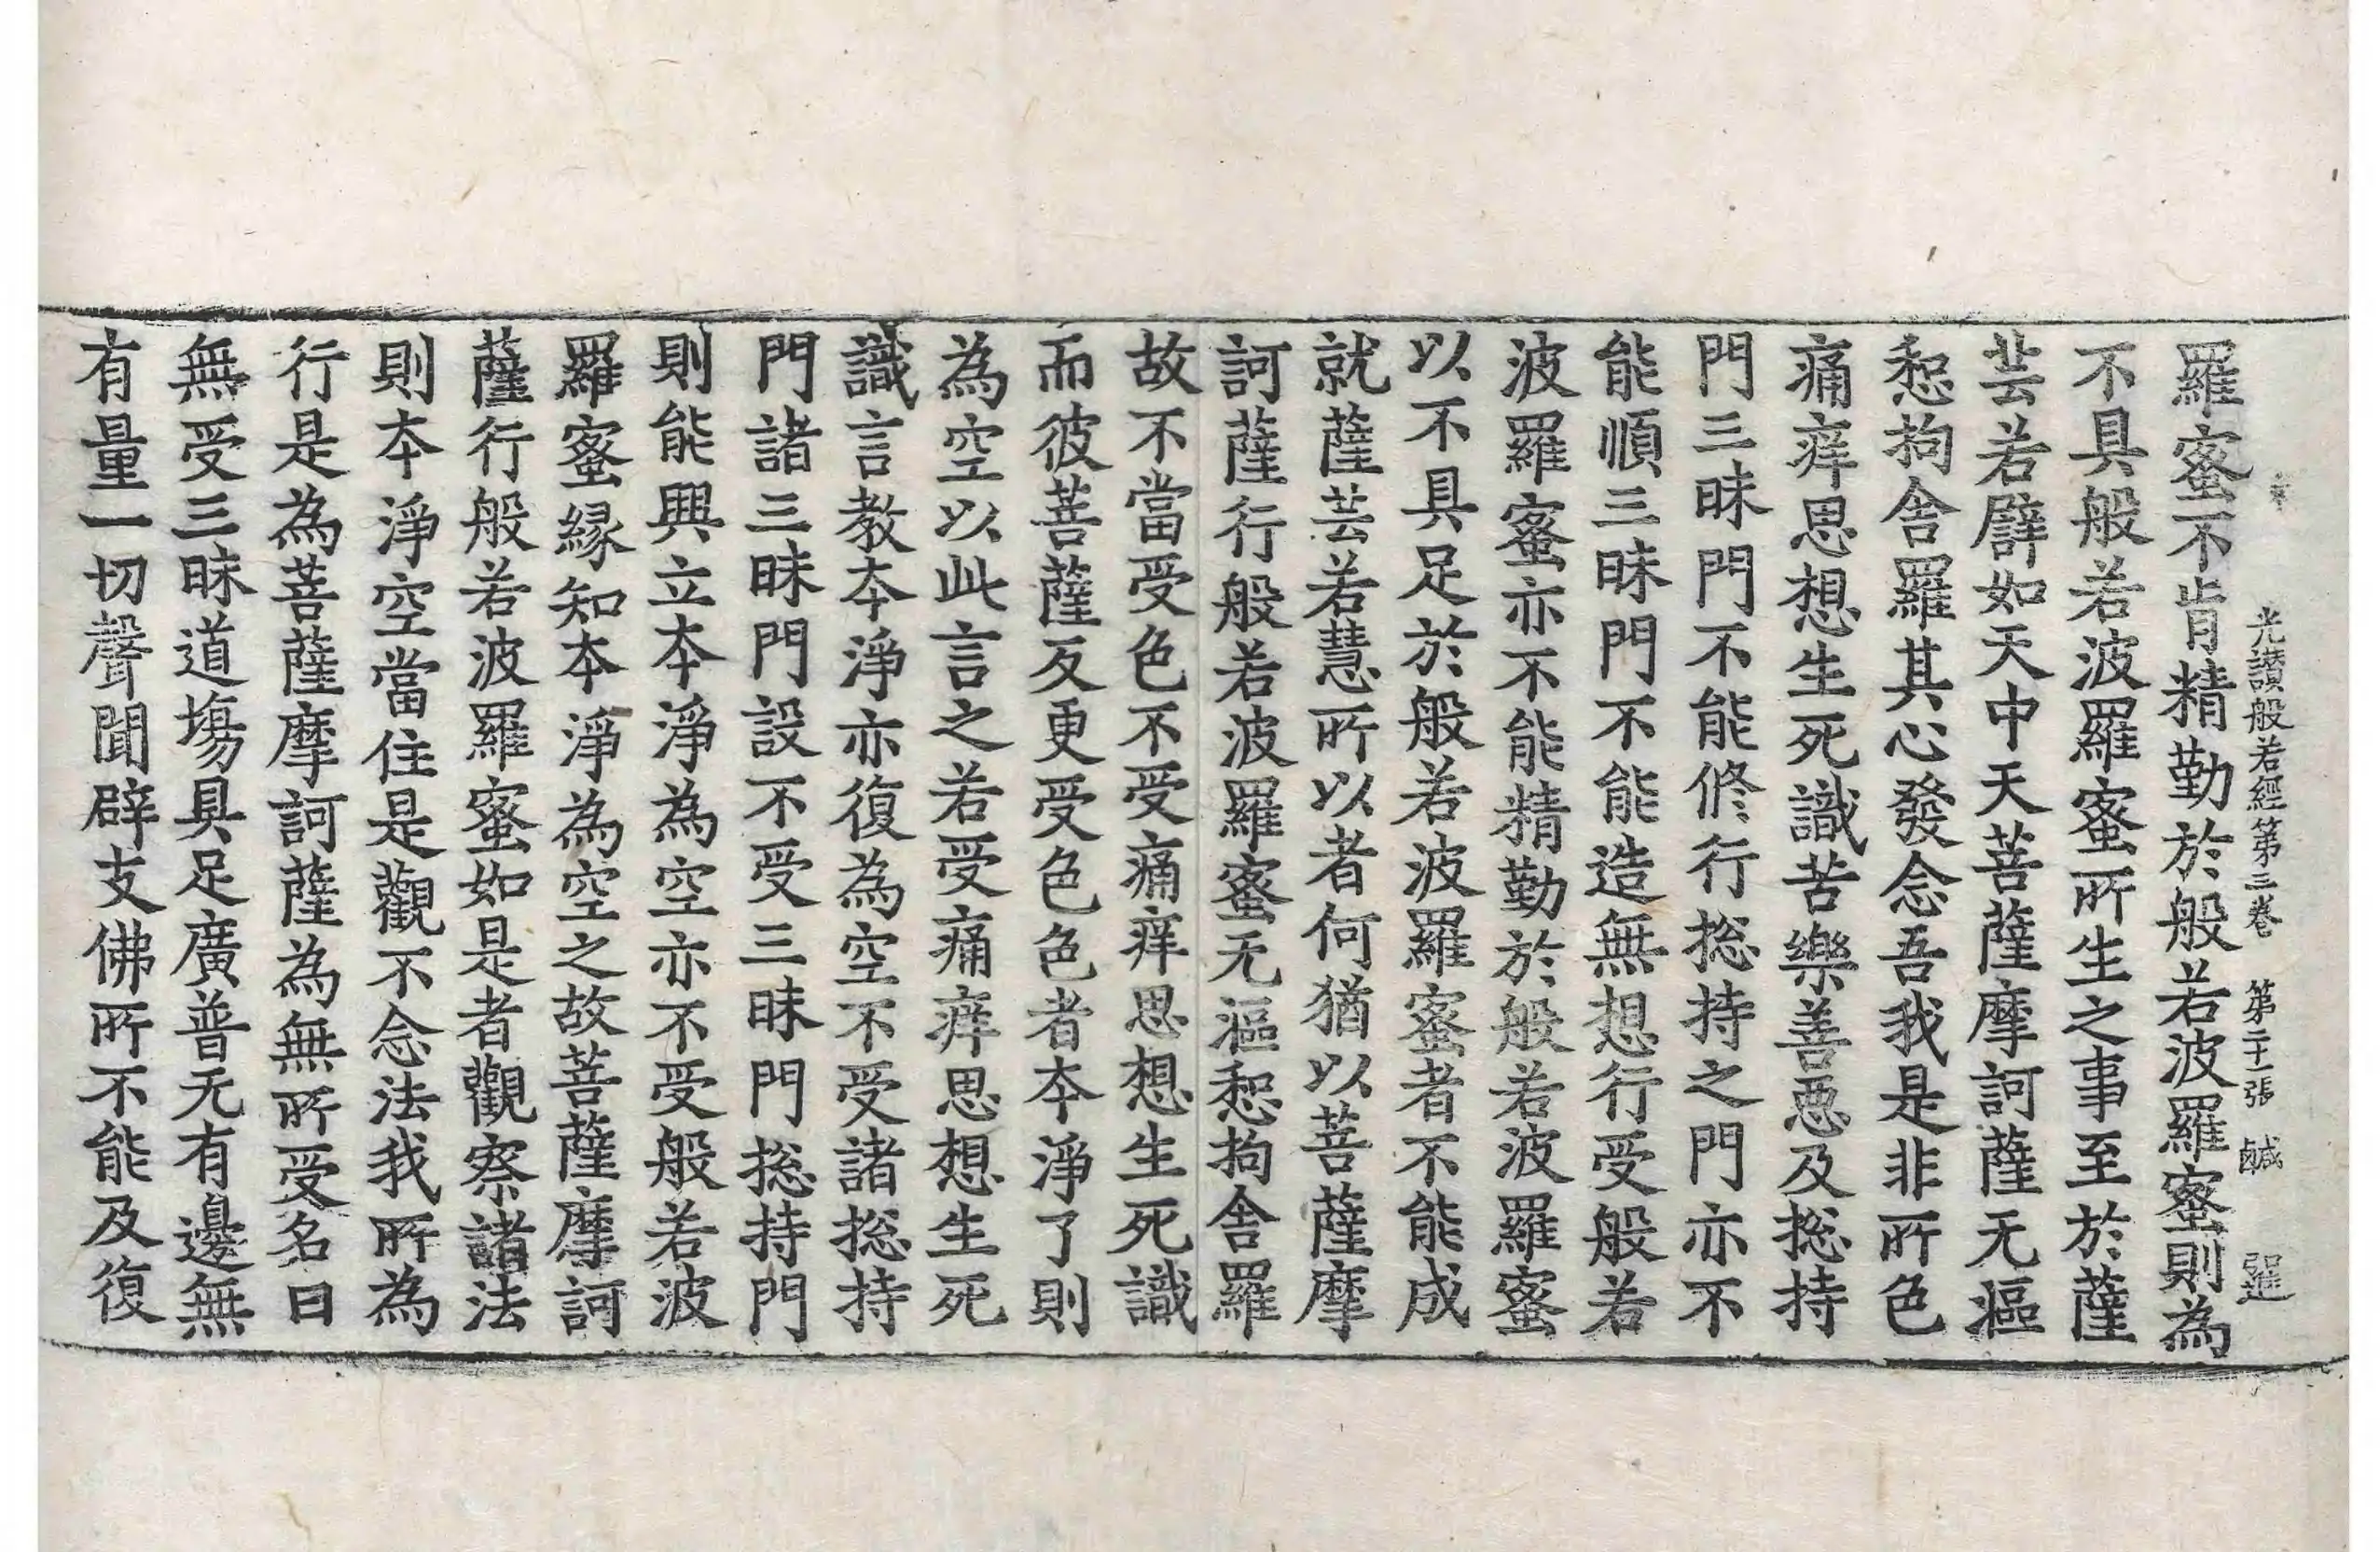 光讃般若經第三卷 第二十一張 鹹
羅蜜不肯精勤於般若波羅蜜則為
不具般若波羅蜜所生之事至於薩
芸若譬如天中天菩薩摩訶薩无漚
惒拘舍羅其心發念吾我是非所色
痛痒思想生死識苦樂善惡及揔持
門三昧門不能修行揔持之門亦不
能順三昧門不能造無想行受般若
波羅蜜亦不能精勤於般若波羅蜜
以不具足於般若波羅蜜者不能成
就薩芸若慧所以者何猶以菩薩摩
訶薩行般若波羅蜜无漚惒拘舍羅
故不當受色不受痛痒思想生死識
而彼菩薩反更受色色者本淨了則
為空以此言之若受痛痒思想生死
識言教本淨亦復為空不受諸揔持
門諸三昧門設不受三昧門揔持門
則能興立本淨為空亦不受般若波
羅蜜緣知本淨為空之故菩薩摩訶
薩行般若波羅蜜如是者觀察諸法
則本淨空當住是觀不念法我所為
行是為菩薩摩訶薩為無所受名曰
無受三昧道場具足廣普无有邊無
有量一切聲聞辟支佛所不能及復